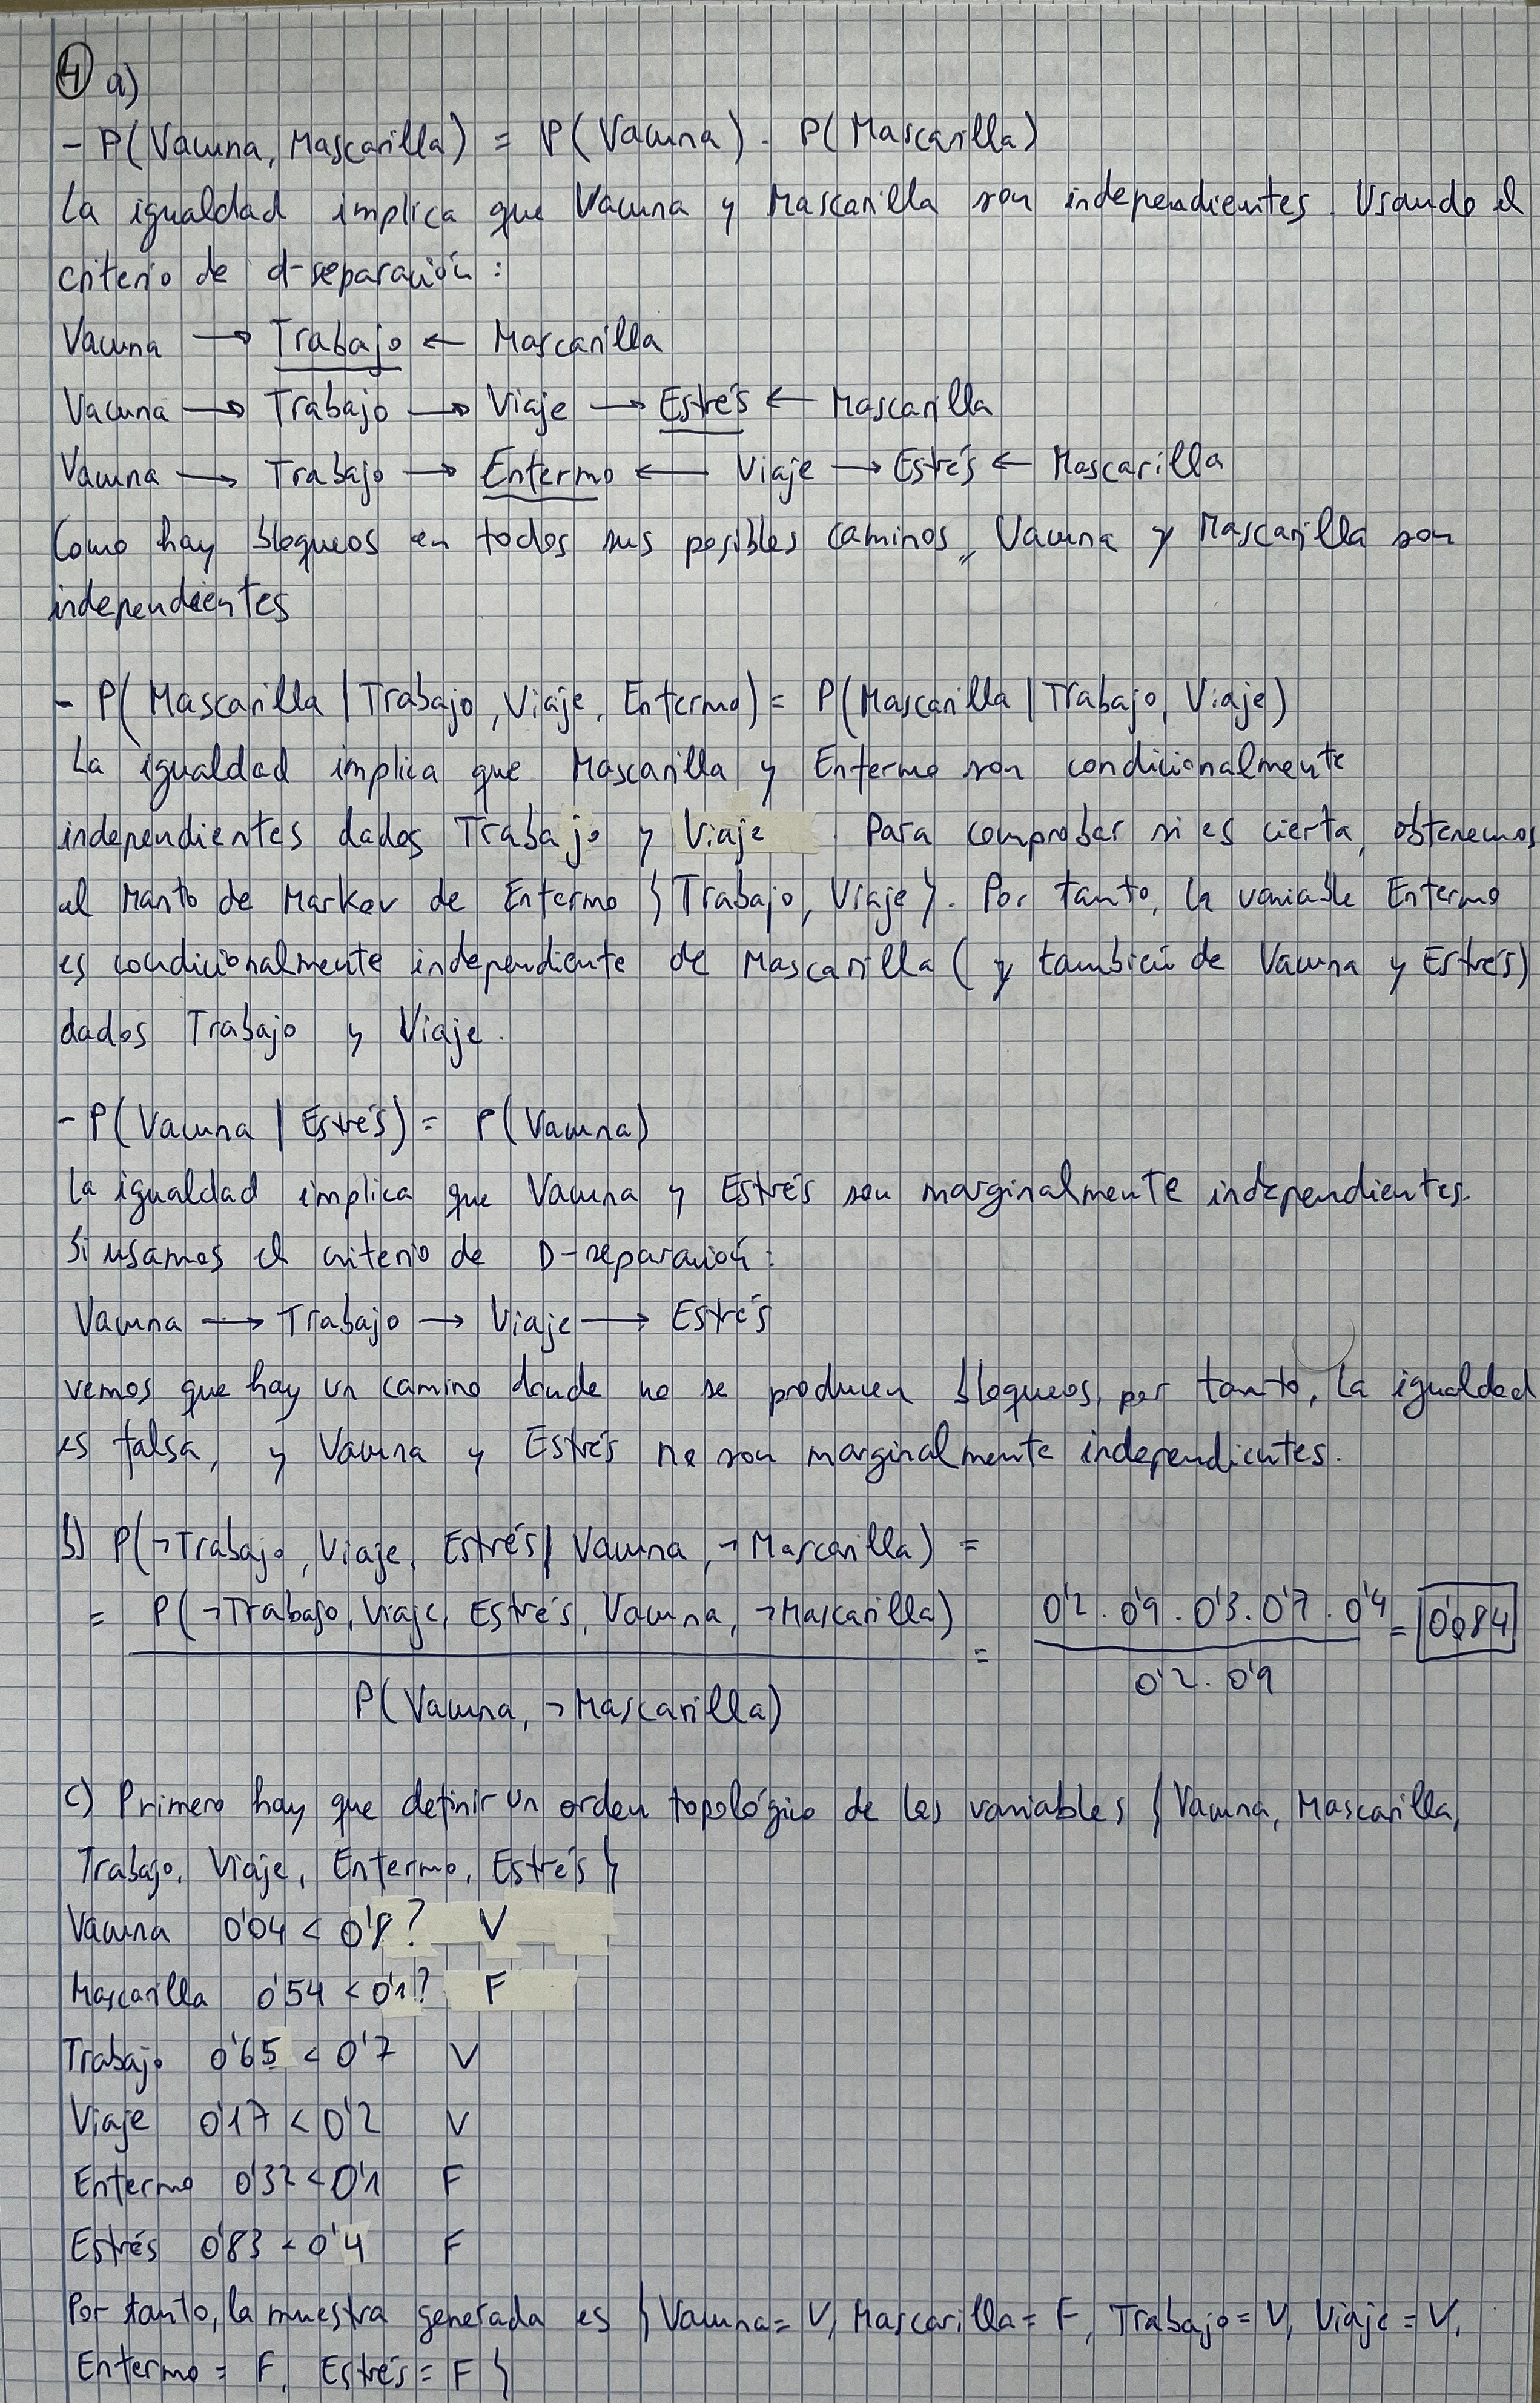 ④ a)
- P(Vacuna, Mascarilla) = P(Vacuna) · P(Mascarilla)
La igualdad implica que Vacuna y Mascarilla son independientes. Usando el
criterio de d-separación:
Vacuna → Trabajo ← Mascarilla
Vacuna → Trabajo → Viaje → Estrés ← Mascarilla
Vacuna → Trabajo → Enfermo ← Viaje → Estrés ← Mascarilla
Como hay bloqueos en todos sus posibles caminos, Vacuna y Mascarilla son
independientes
- P(Mascarilla | Trabajo, Viaje, Enfermo) = P(Mascarilla | Trabajo, Viaje)
La igualdad implica que Mascarilla y Enfermo son condicionalmente
independientes dados Trabajo y Viaje. Para comprobar si es cierta, obtenemos
el Manto de Markov de Enfermo {Trabajo, Viaje}. Por tanto, la variable Enfermo
es condicionalmente independiente de Mascarilla (y también de Vacuna y Estrés)
dados Trabajo y Viaje.
- P(Vacuna | Estrés) = P(Vacuna)
La igualdad implica que Vacuna y Estrés son marginalmente independientes.
Si usamos el criterio de D-separación:
Vacuna → Trabajo → Viaje → Estrés
vemos que hay un camino donde no se producen bloqueos, por tanto, la igualdad
es falsa, y Vacuna y Estrés no son marginalmente independientes.
b) P(¬Trabajo, Viaje, Estrés | Vacuna, ¬Mascarilla) =
= P(¬Trabajo, Viaje, Estrés, Vacuna, ¬Mascarilla) = 0'2 · 0'9 · 0'3 · 0'7 · 0'4 = 0'084
P(Vacuna, ¬Mascarilla) 0'2 · 0'9
c) Primero hay que definir un orden topológico de las variables {Vacuna, Mascarilla,
Trabajo, Viaje, Enfermo, Estrés}
Vacuna 0'04 < 0'8? V
Mascarilla 0'54 < 0'1? F
Trabajo 0'65 < 0'7 V
Viaje 0'17 < 0'2 V
Enfermo 0'32 < 0'1 F
Estrés 0'83 < 0'4 F
Por tanto, la muestra generada es {Vacuna = V, Mascarilla = F, Trabajo = V, Viaje = V,
Enfermo = F, Estrés = F}